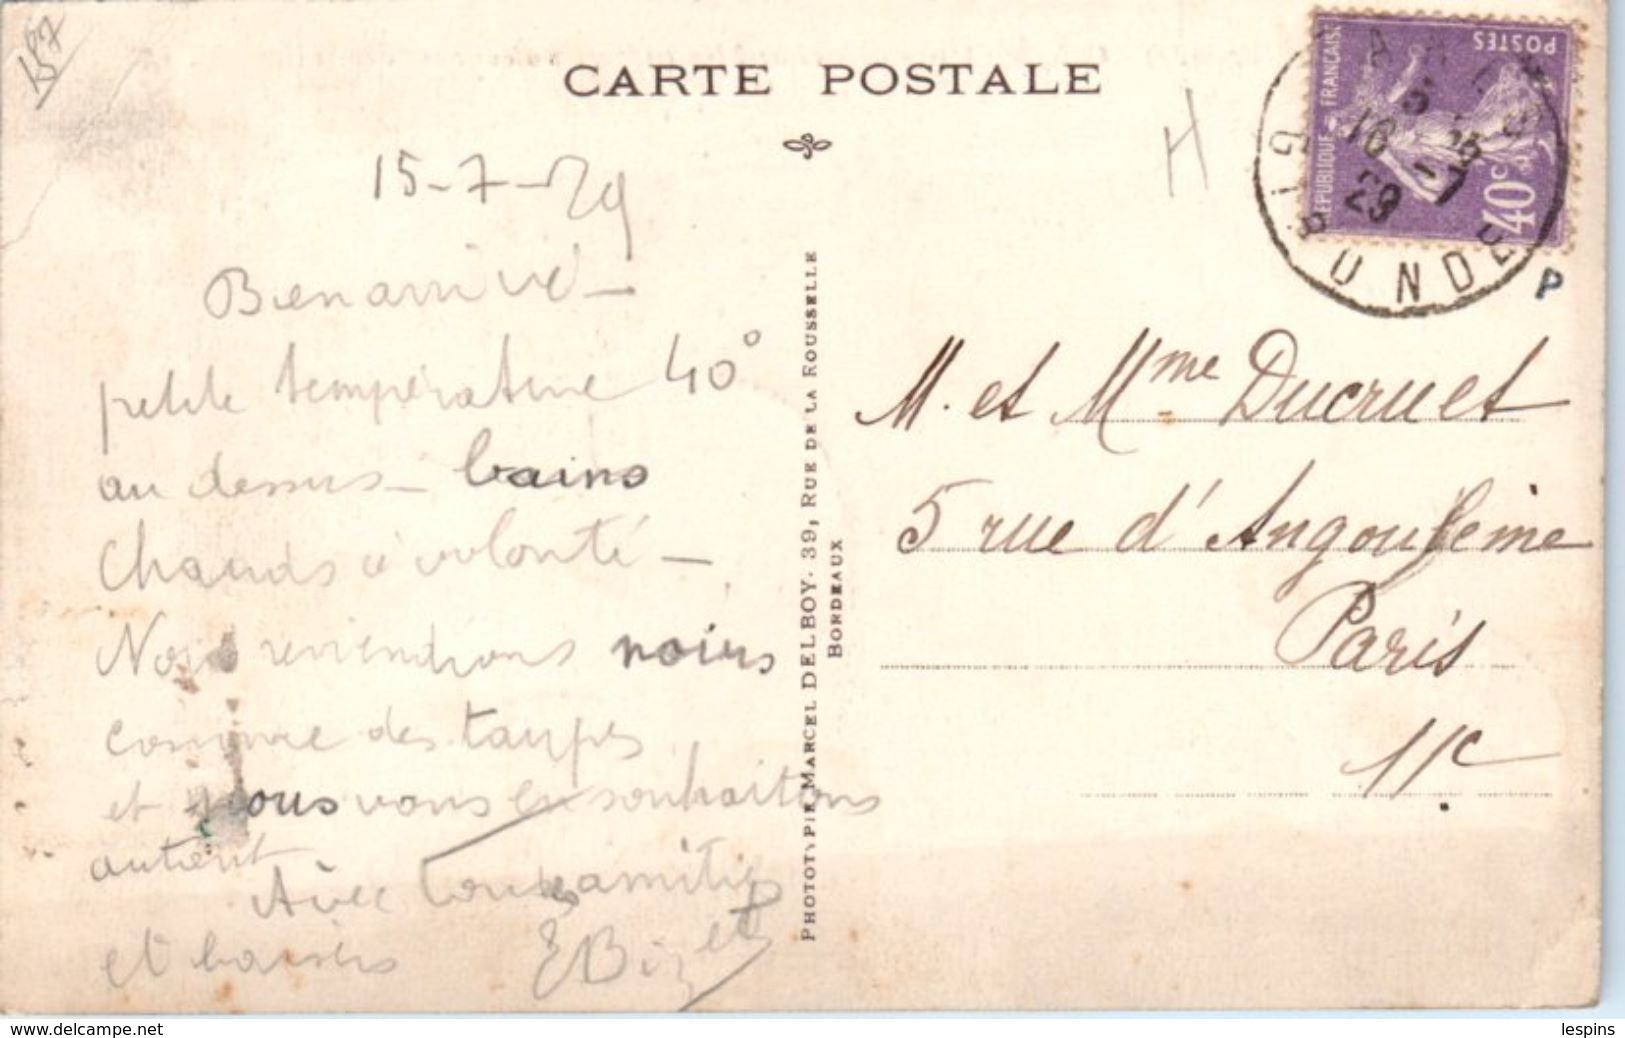 157
CARTE POSTALE
H
15-7-29
Bien arrivé —
petite température 40°
au dessus — bains
Chauds à volonté —
Nous reviendrons noirs
comme des taupes
et nous vous en souhaitons
autant
Avec toutes amitiés
et baisers EBizet
PHOTOTYPIE MARCEL DELBOY. 39, RUE DE LA ROUSSELLE
BORDEAUX
POSTES
REPUBLIQUE FRANÇAISE
40c
16 -7
29
GIRONDE
P
M. et Mme Ducruet
5 rue d'Angoulême
Paris
11e
delcampe.net
lespins